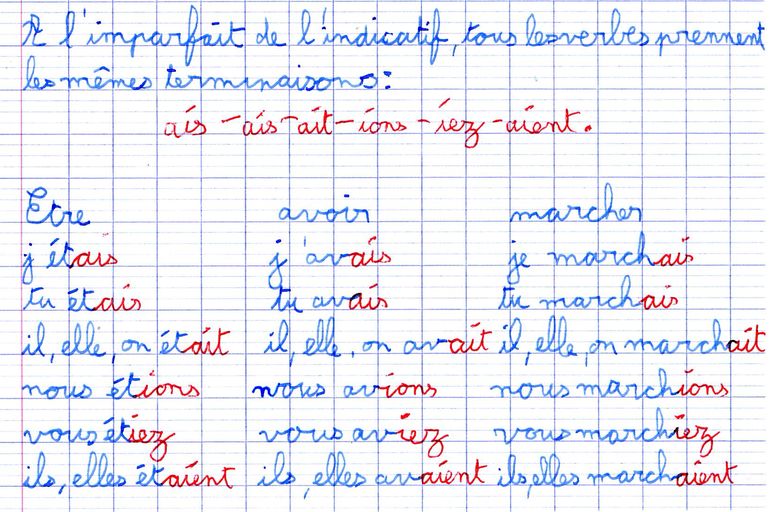 A l'imparfait de l'indicatif, tous les verbes prennent
les mêmes terminaisons:
ais - ais - ait - ions - iez - aient.
Etre avoir marcher
j étais j'avais je marchais
tu étais tu avais tu marchais
il, elle, on était il, elle, on avait il, elle, on marchait
nous étions nous avions nous marchions
vous étiez vous aviez vous marchiez
ils, elles étaient ils, elles avaient ils, elles marchaient